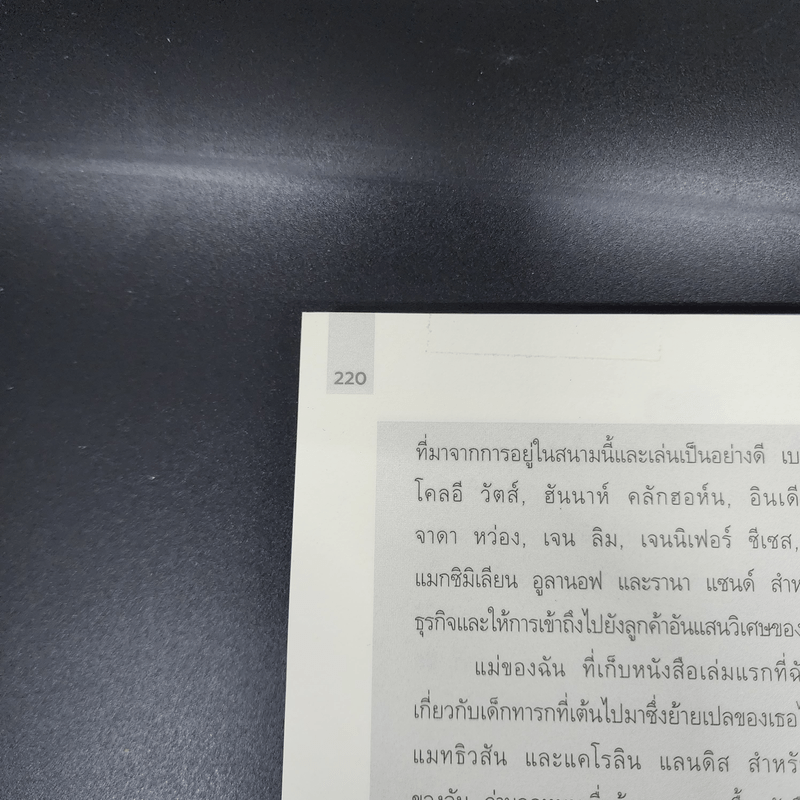 220
ที่มาจากการอยู่ในสนามนี้และเล่นเป็นอย่างดี เบ
โคลอี วัตส์, ฮันนาห์ คลักฮอห์น, อินเดี
จาดา หว่อง, เจน ลิม, เจนนิเฟอร์ ซีเซส,
แมกซิมิเลียน อูลานอฟ และรานา แซนด์ สำห
ธุรกิจและให้การเข้าถึงไปยังลูกค้าอันแสนวิเศษของ
แม่ของฉัน ที่เก็บหนังสือเล่มแรกที่ฉั
เกี่ยวกับเด็กทารกที่เต้นไปมาซึ่งย้ายเปลของเธอไ
แมทธิวสัน และแคโรลิน แลนดิส สำหรั
ของฉัน